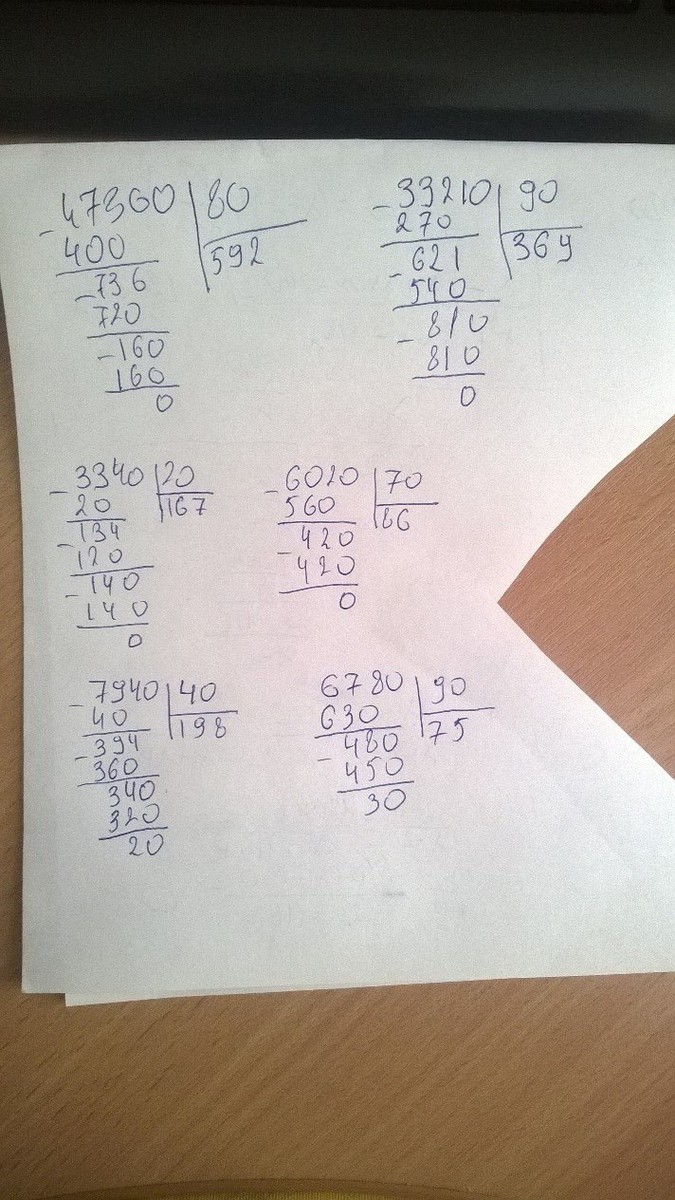 47360 80
- 400 592
736
- 720
160
- 160
0
33210 90
- 270 369
621
- 540
810
- 810
0
3340 20
- 20 167
134
- 120
140
- 140
0
6020 70
- 560 86
420
- 420
0
7940 40
- 40 198
394
- 360
340
320
20
6780 90
630 75
480
- 450
30